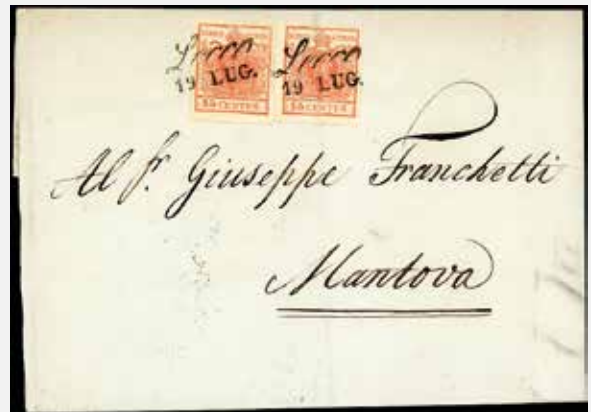 19 LUG. 19 LUG.
15 CENTES 15 CENTES
Al Sr. Giuseppe Franchetti
Mantova